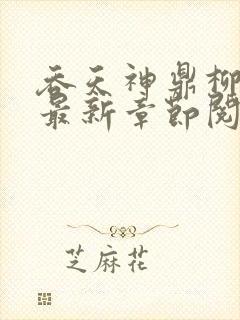 吞天神鼎柳
最新章节阅
芝麻花